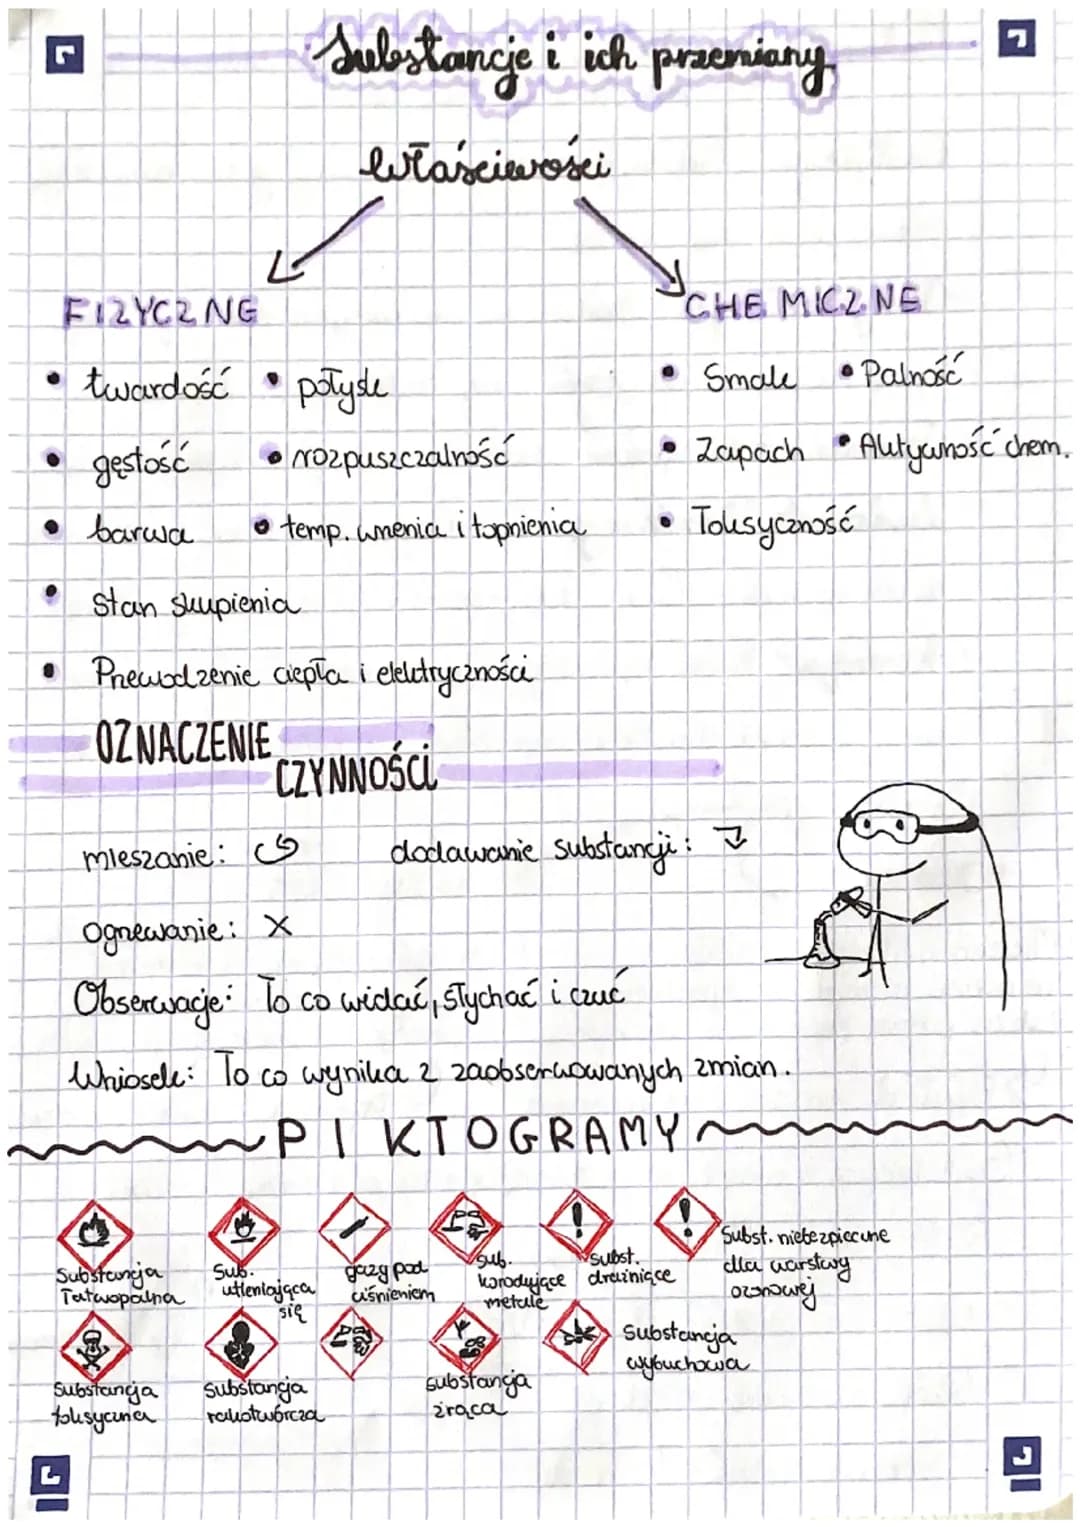 Substancje i ich przemiany
Właściwości
FIZYCZNE
CHEMICZNE
• twardość • połysk
• Smak • Palność
• gęstość • rozpuszczalność
• Zapach • Aktywność chem.
• barwa • temp. wrzenia i topnienia
• Toksyczność
• Stan skupienia
• Przewodzenie ciepła i elektryczności
OZNACZENIE
CZYNNOŚCI
mieszanie:
dodawanie substancji:
Ogrzewanie: X
Obserwacje: To co widać, słychać i czuć
Wniosek: To co wynika z zaobserwowanych zmian.
PIKTOGRAMY
Substancja
łatwopalna
Sub.
utleniająca
się
gazy pod
ciśnieniem
sub.
korodujące
metale
subst.
drażniące
Subst. niebezpieczne
dla warstwy
ozonowej
Substancja
toksyczna
Substancja
rakotwórcza
substancja
żrąca
Substancja
wybuchowa